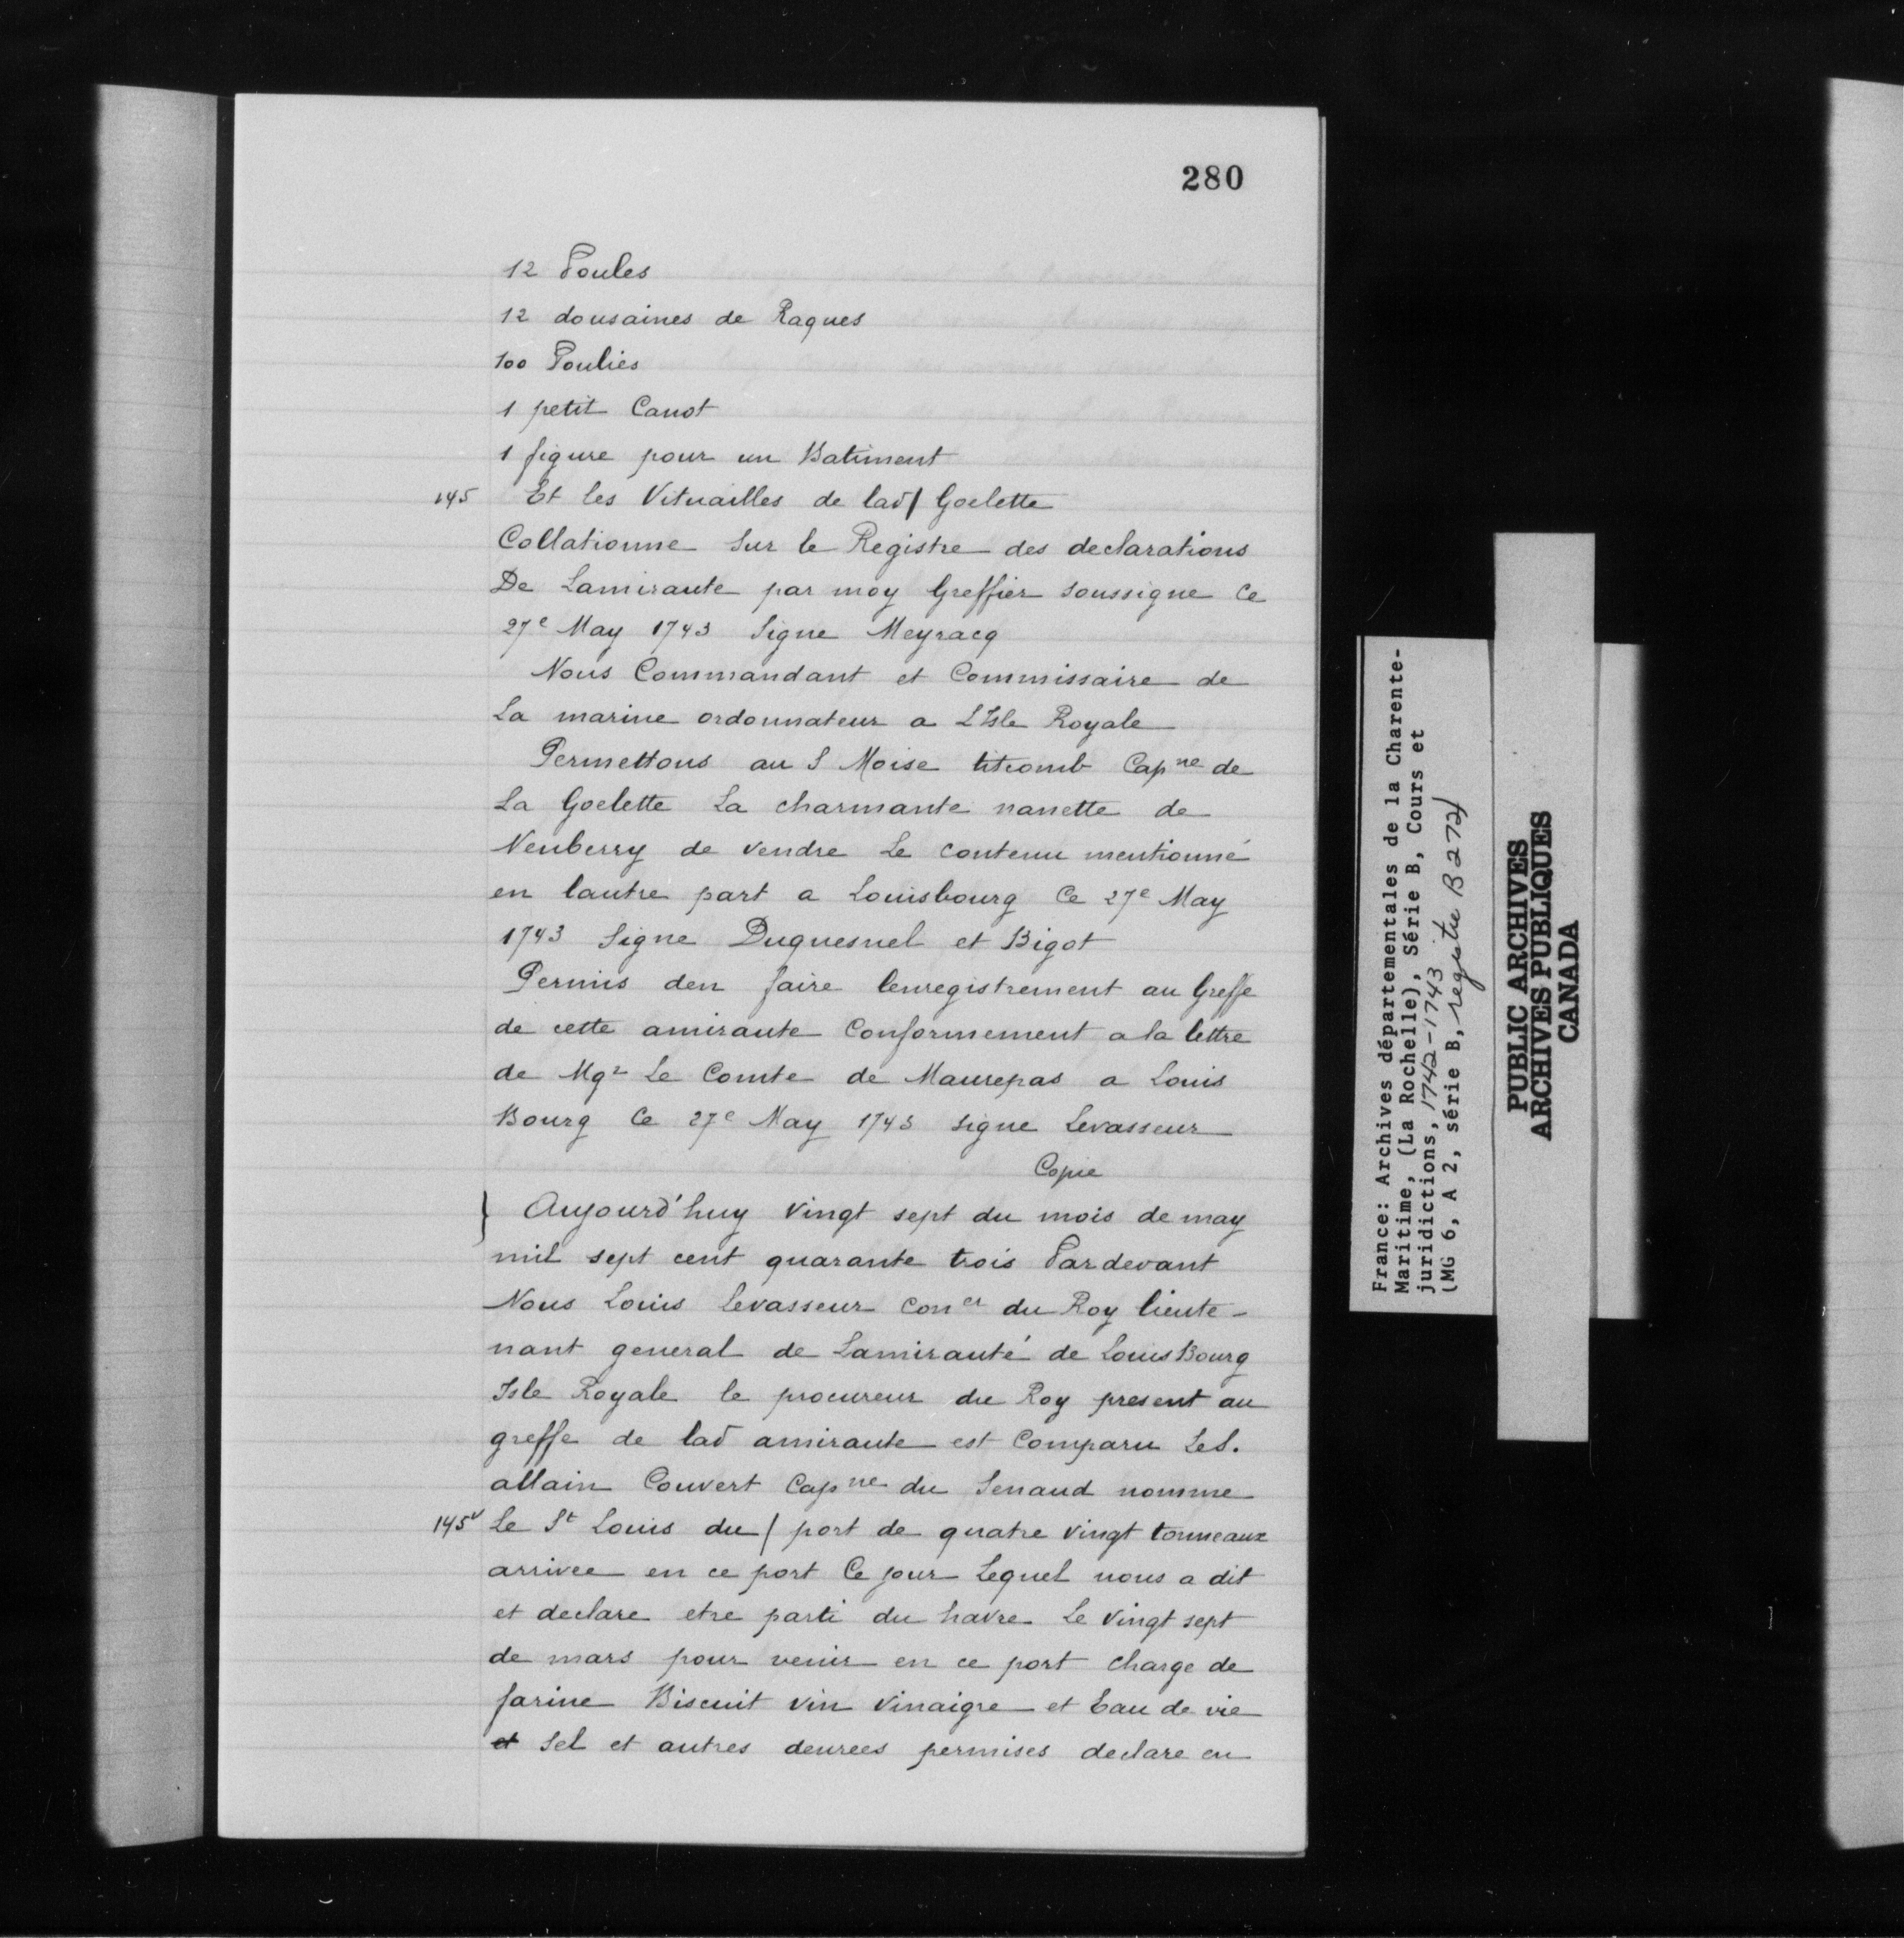 280
12 Poules
12 dousaines de Raques
100 Poulies
1 petit Canot
1 figure pour un Batiment
145 Et les Vituailles de lad/ Goelette
Collationne Sur le Registre des declarations
De Lamiraute par moy Greffier soussigne Ce
27e May 1743 Signe Meyracq
Nous Commandant et Commissaire de
La marine ordonnateur a L'Isle Royale
Permettons au S Moise titcomb Capne de
La Goelette La charmante nanette de
Neuberry de vendre Le contenu mentionné
en lautre part a Louisbourg Ce 27e May
1743 Signe Duquesnel et Bigot
Permis den faire lenregistrement au Greffe
de cette amiraute Conformement a la lettre
de Mgr Le Comte de Maurepas a Louis
Bourg Ce 27e May 1743 signe Levasseur
Copie
} Aujourd'huy vingt sept du mois de may
mil sept cent quarante trois Pardevant
Nous Louis Levasseur Coner du Roy lieute-
nant general de Lamirauté de LouisBourg
Isle Royale le procureur du Roy present au
greffe de lad amiraute est Comparu Le S.
allain Couvert Capne du Senaud nomme
145v Le St Louis du / port de quatre vingt tonneaux
arrivee en ce port Ce jour Lequel nous a dit
et declare etre parti du havre Le vingt sept
de mars pour venir en ce port charge de
farine Biscuit vin vinaigre et Eau de vie
et Sel et autres denrees permises declare en
France: Archives départementales de la Charente-
Maritime, (La Rochelle), Série B, Cours et
juridictions, 1742-1743
(MG 6, A 2, série B, registre B 272)
PUBLIC ARCHIVES
ARCHIVES PUBLIQUES
CANADA